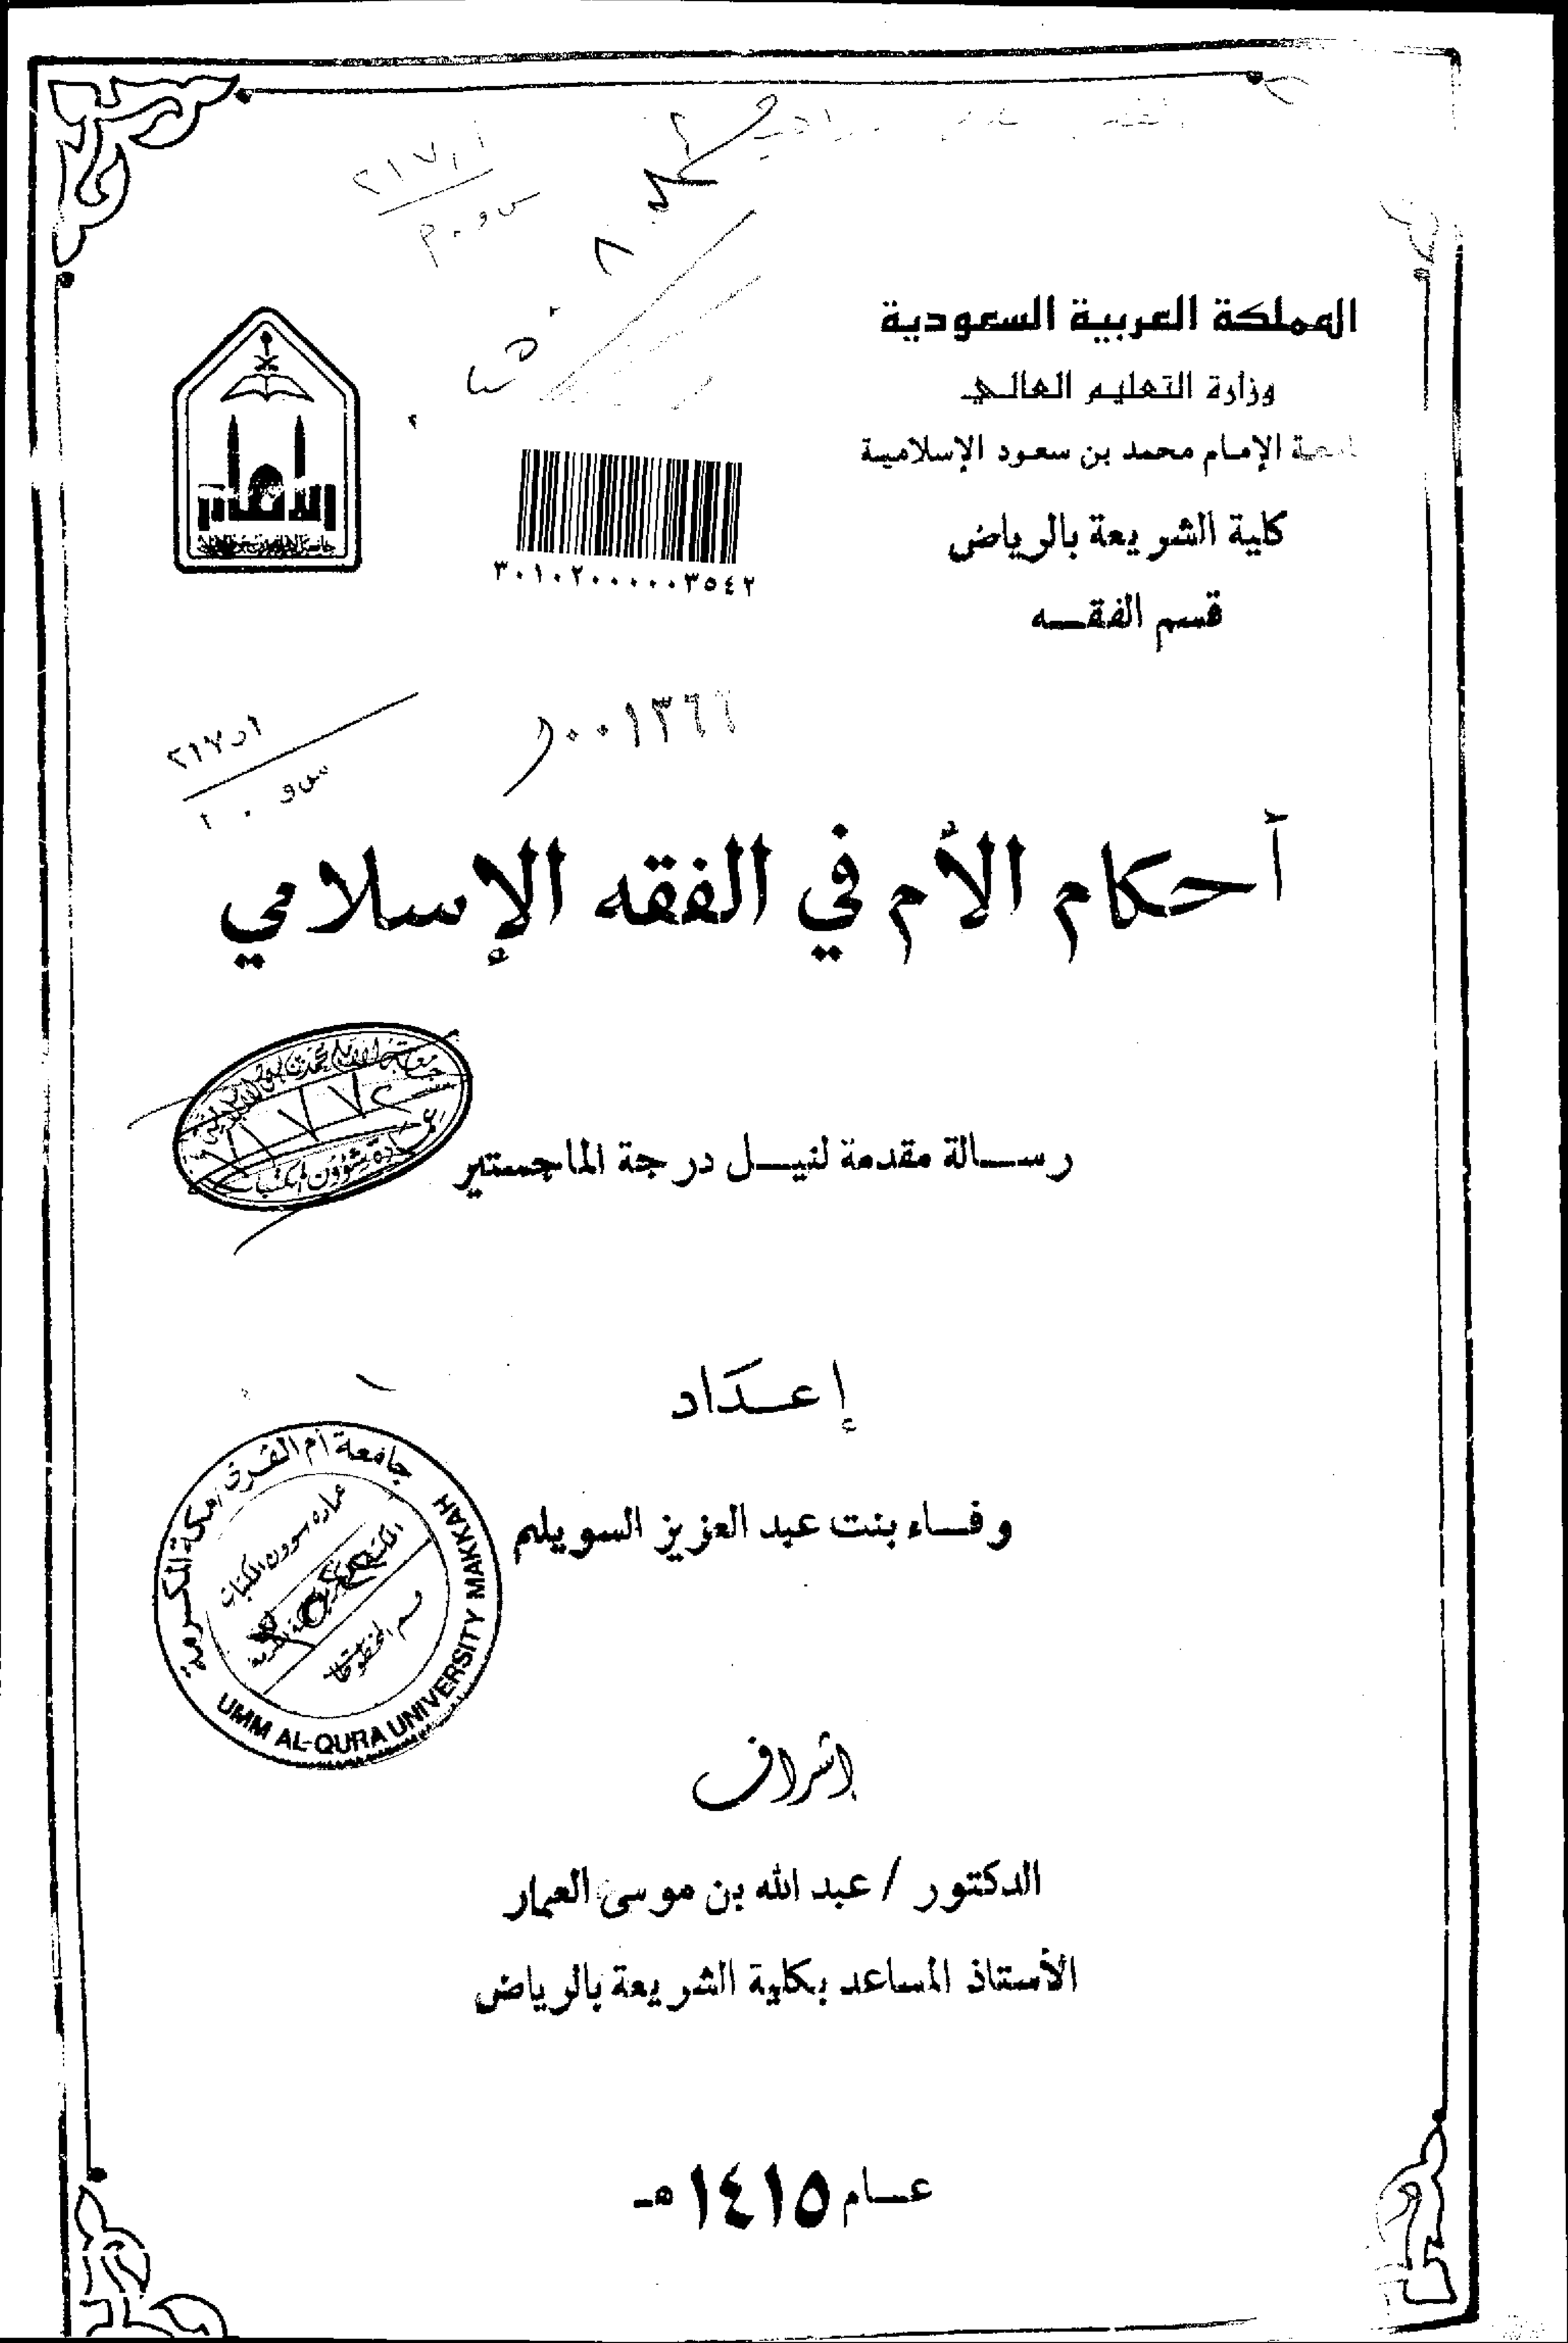 المملكة العربية السعودية
وزارة التعليم العالي
الإمام محمد بن سعود الإسلامية
كلية الشريعة بالرياض
قسم الفقه
٣٠١٠٢٠٠٠٠٠٣٥٤٢
٠٠١٣٦٦
أحكام الأم في الفقه الإسلامي
رسالة مقدمة لنيل درجة الماجستير
إعداد
وفاء بنت عبد العزيز السويلم
جامعة أم القرى مكة المكرمة
عمادة شؤون المكتبات
قسم المخطوطات
UMM AL-QURA UNIVERSITY MAKKAH
إشراف
الدكتور / عبد الله بن موسى العمار
الأستاذ المساعد بكلية الشريعة بالرياض
عام ١٤١٥هـ